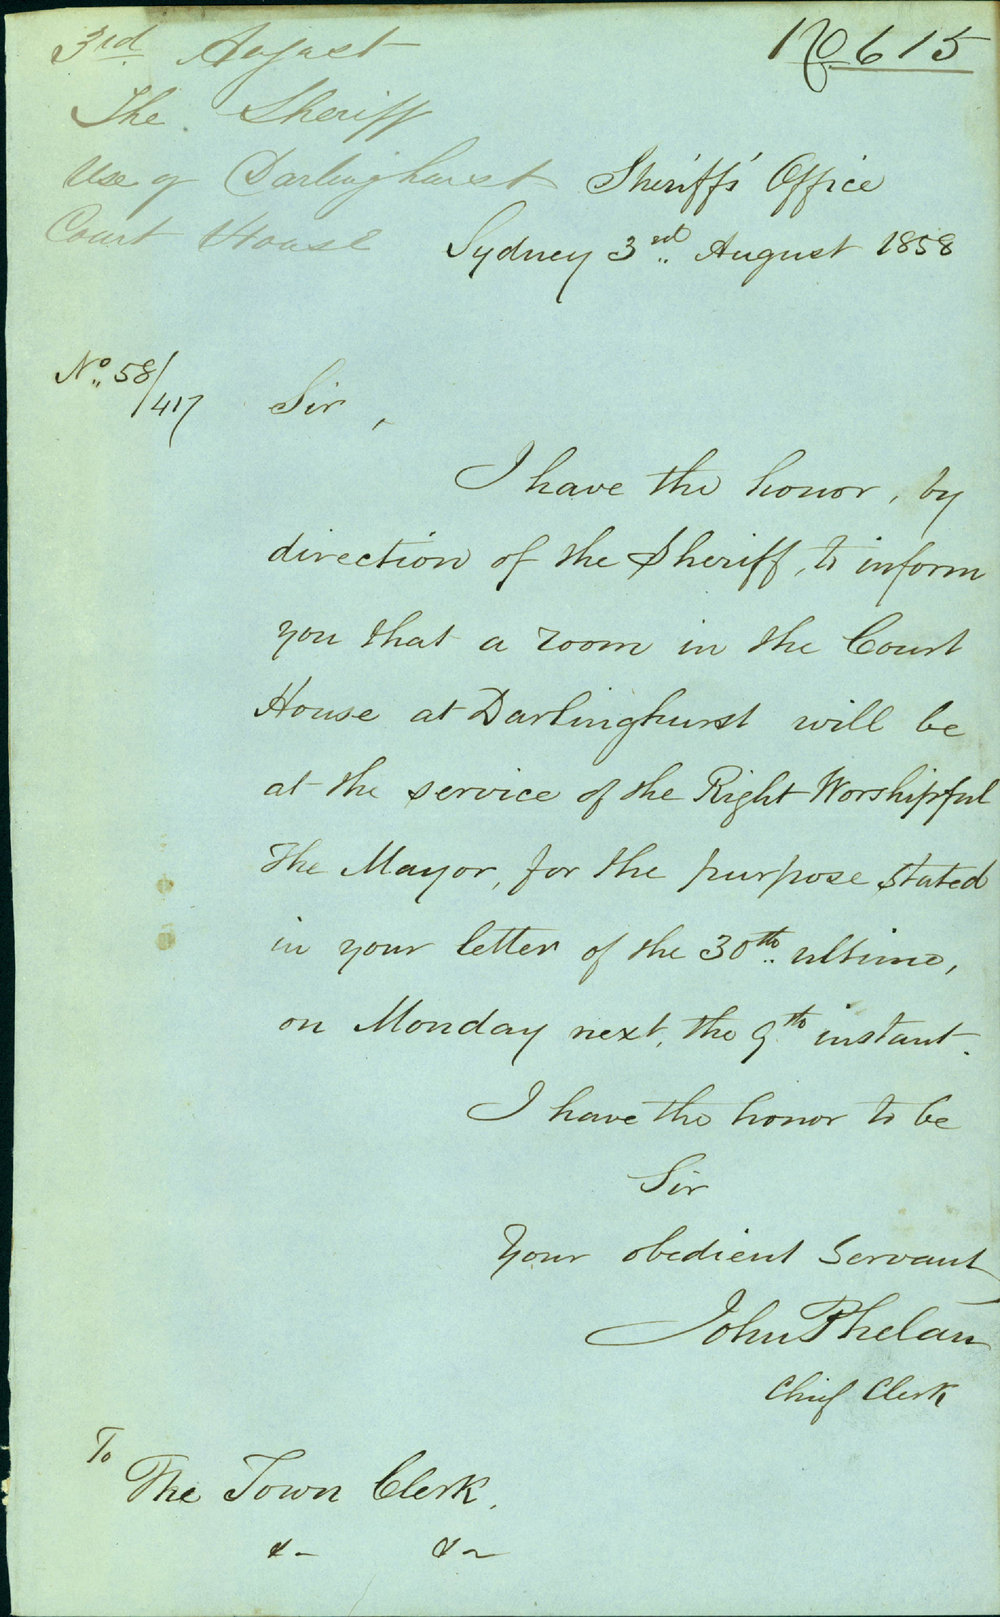 No 615
3rd August
The Sheriff
Use of Darlinghurst
Court House
Sheriff's Office
Sydney 3rd August 1858
No. 58/417
Sir,
I have the honor, by
direction of the Sheriff, to inform
you that a room in the Court
House at Darlinghurst will be
at the service of the Right Worshipful
The Mayor, for the purpose stated
in your letter of the 30th ultimo,
on Monday next, the 9th instant.
I have the honor to be
Sir
Your obedient Servant
John Phelan
Chief Clerk
To
The Town Clerk.
&- &-